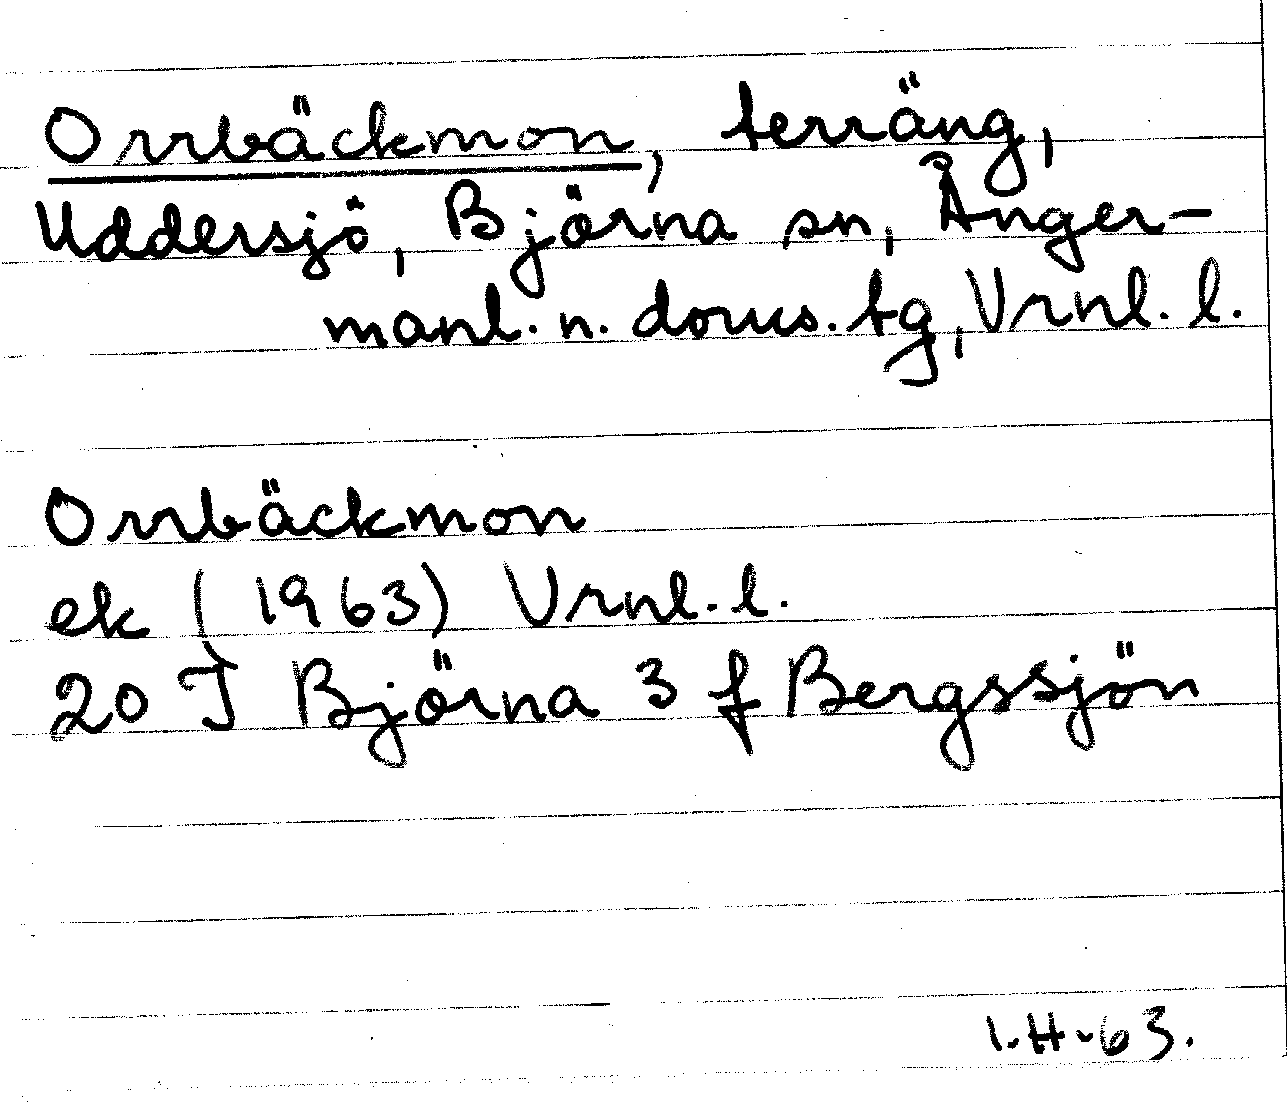 Orrbäckmon, terräng,
Uddersjö, Björna sn, Ånger-
manl. n. doms. tg, Vrnl. l.
Orrbäckmon
ek (1963) Vrnl. l.
20 J Björna 3 f Bergssjön
I.H-63.